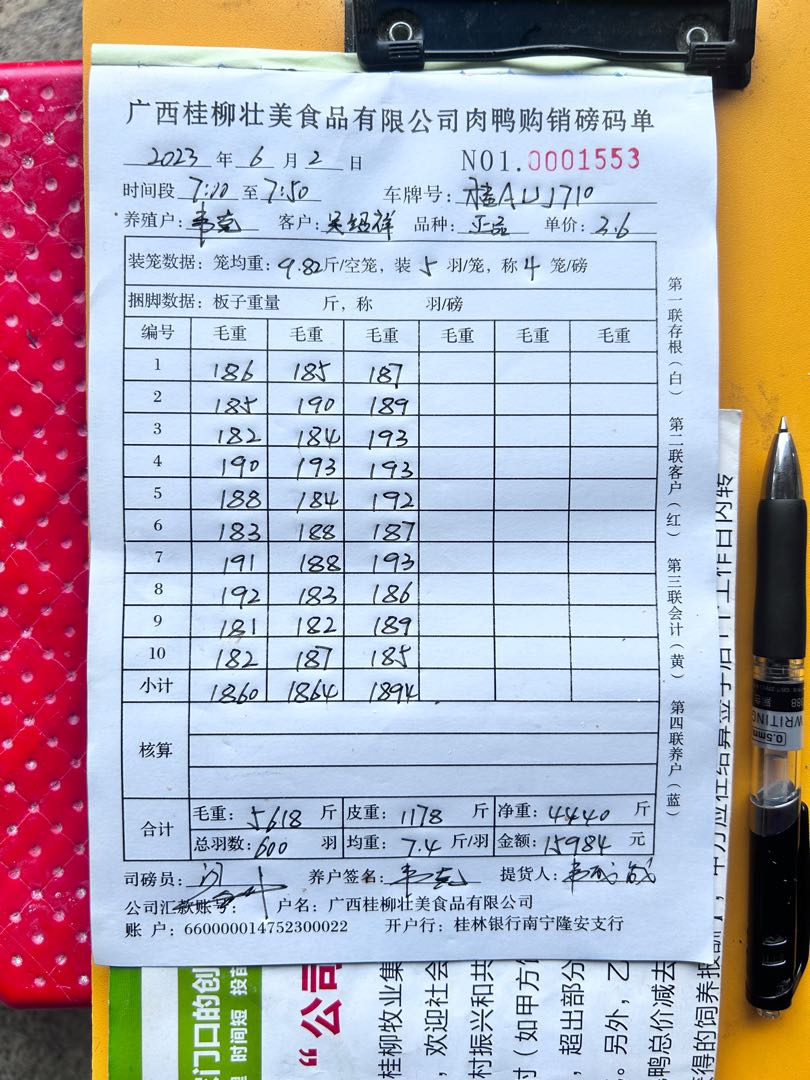 广西桂柳壮美食品有限公司肉鸭购销磅码单
2023年6月2日 NO1.0001553
时间段 7:10 至 7:50 车牌号: 桂A
养殖户: 韦克 客户: 吴绍祥 品种: 正品 单价:
装笼数据: 笼均重: 9.82斤/空笼, 装5羽/笼, 称4笼/磅
捆脚数据: 板子重量 斤, 称 羽/磅
编号 毛重 毛重 毛重 毛重 毛重 毛重
1 186 185 187
2 185 190 189
3 182 184 193
4 190 193 193
5 188 184 192
6 183 188 187
7 191 188 193
8 192 183 186
9 181 182 189
10 182 187 185
小计 1860 1864 1894
核算
合计
毛重: 5618 斤 皮重: 1178 斤 净重: 4440 斤
总羽数: 600 羽 均重: 7.4 斤/羽 金额: 15984 元
司磅员: 养户签名: 提货人:
公司汇款账号: 户名: 广西桂柳壮美食品有限公司
账 户: 660000014752300022 开户行: 桂林银行南宁隆安支行
第一联存根(白)
第二联客户(红)
第三联会计(黄)
第四联养户(蓝)
门口的创
时间短 投
“公司
桂柳牧业集
，欢迎社会
村振兴和共
(如甲方
，超出部分
。另外，乙
鸭总价减去
得的饲养报酬
WRITING
0.5mm